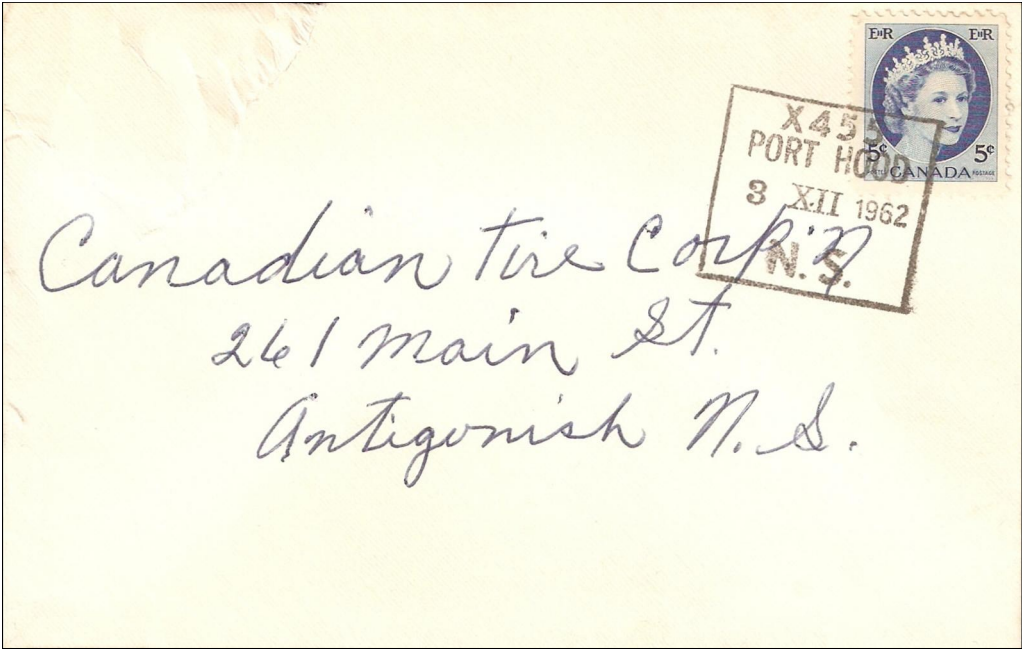 EIIR EIIR
5¢ 5¢
POSTES CANADA POSTAGE
X455
PORT HOOD
3 XII 1962
N. S.
Canadian Tire Corp'n
261 Main St.
Antigonish N. S.